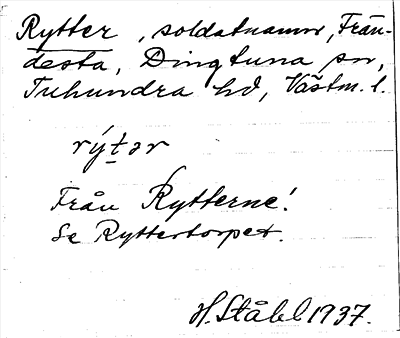 Rytter, soldatnamn, Frän-
desta, Dingtuna sn,
Tuhundra hd, Västm. l.
rýtər
Från Rytterne!
Se Ryttertorpet.
H. Ståhl 1937.